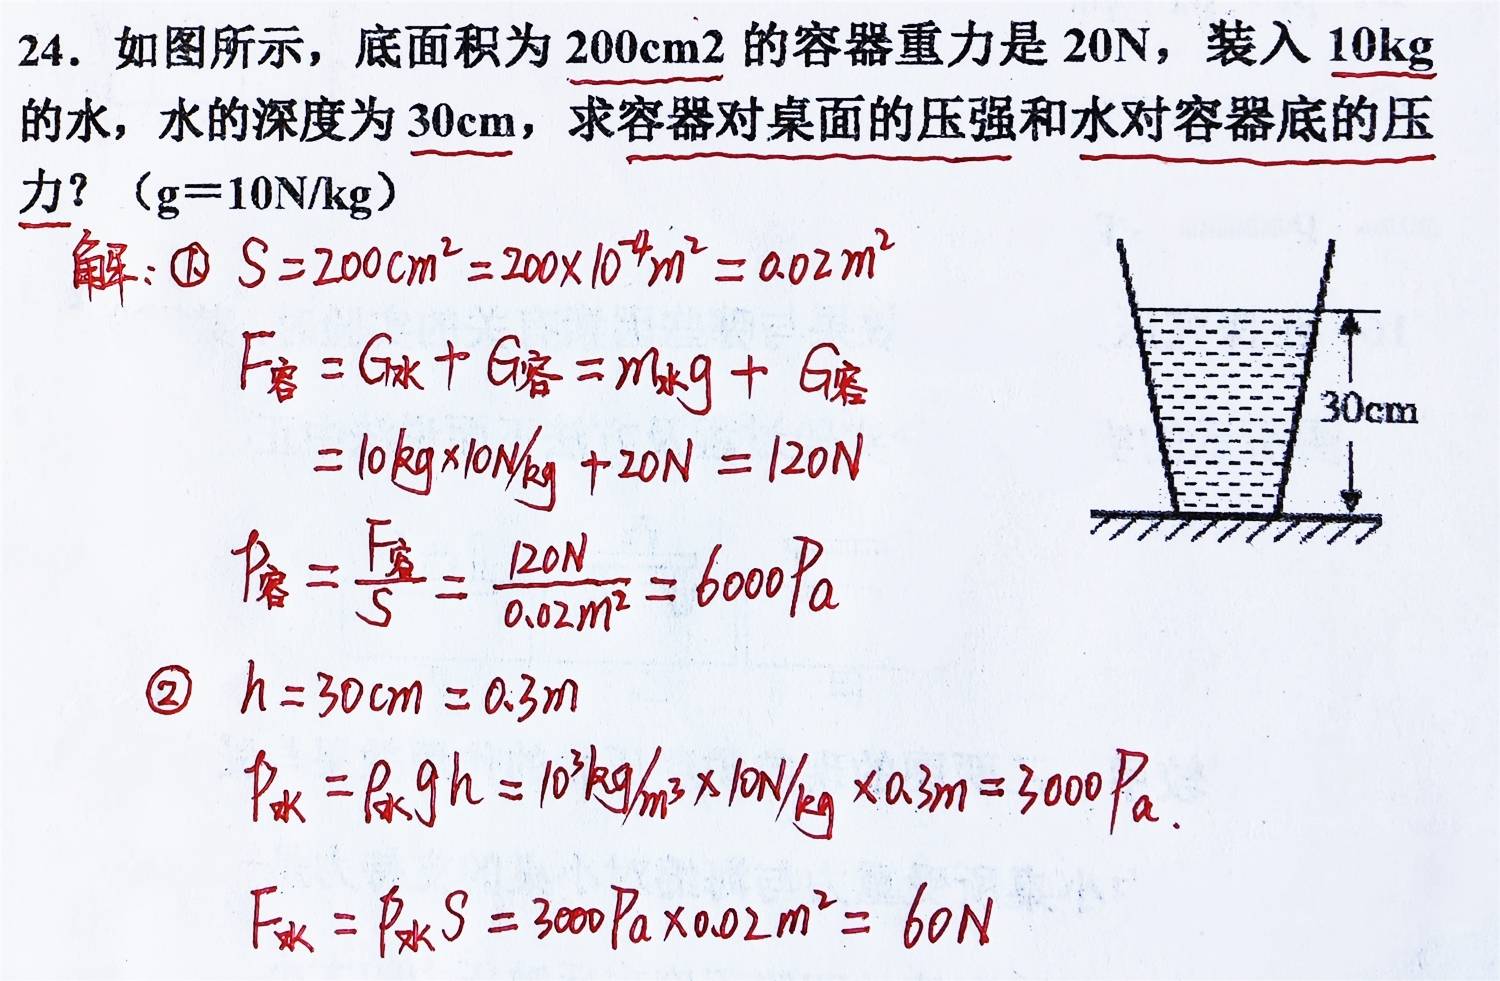 24．如图所示，底面积为 200cm2 的容器重力是 20N，装入 10kg
的水，水的深度为 30cm，求容器对桌面的压强和水对容器底的压
力？（g＝10N/kg）
解：① S = 200cm² = 200×10⁻⁴m² = 0.02m²
F容 = G水 + G容 = m水g + G容
= 10kg×10N/kg + 20N = 120N
30cm
P容 = F容/S = 120N/0.02m² = 6000Pa
② h = 30cm = 0.3m
P水 = ρ水gh = 10³kg/m³×10N/kg×0.3m = 3000Pa.
F水 = P水S = 3000Pa×0.02m² = 60N